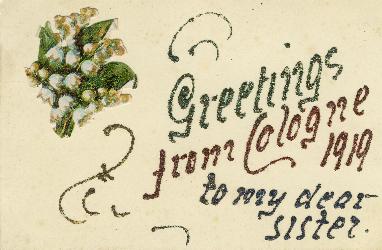 Greetings
from Cologne
1919
to my dear
sister.